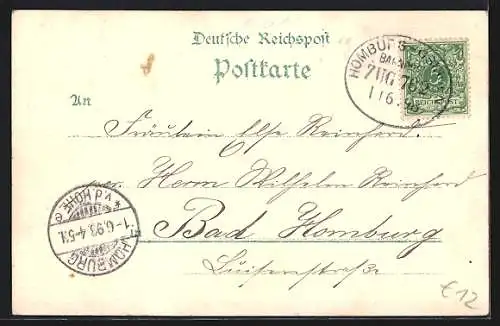 Deutsche Reichspost
Postkarte
An
Fräulein Else Reinhard.
per. Herrn Wilhelm Reinhard
Bad Homburg
Luisenstraße
HOMBURG
ZUG 782
1 6
REICHSPOST
HOMBURG
v.d. HÖHE
1-6.98.4-5N.
€12